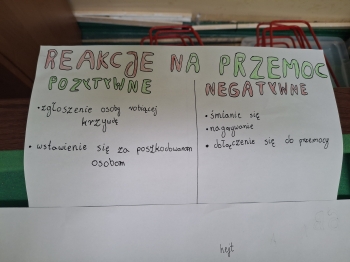 REAKCJE NA PRZEMOC
POZYTYWNE
• zgłoszenie osoby robiącej
krzywdę
• wstawienie się za poszkodowanym
osobom
NEGATYWNE
• śmianie się
• nagrywanie
• dołączenie się do przemocy
hejt